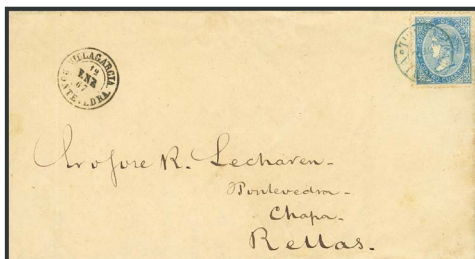 VILLAGARCIA.
12
ENE
67
PONTEVEDRA.
R. Lecharen-
Pontevedra-
Chapa-
Rellas.